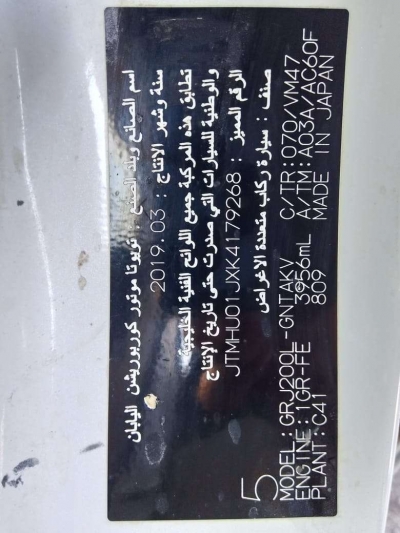 اسم الصانع وبلد الصنع : تويوتا موتور كربوريشن اليابان
سنة وشهر الانتاج : 2019.03
تطابق هذه المركبة جميع اللوائح الفنية الخليجية
والوطنية للسيارات التي صدرت حتى تاريخ الإنتاج
الرقم المميز : JTMHU01JXK4179268
صنف : سيارة ركاب متعددة الاغراض
5
MODEL: GRJ200L-GNTAKV C/TR: 070/VM47
ENGINE: 1GR-FE 3956mL A/TM: A03A/AC60F
PLANT: C41 809 MADE IN JAPAN